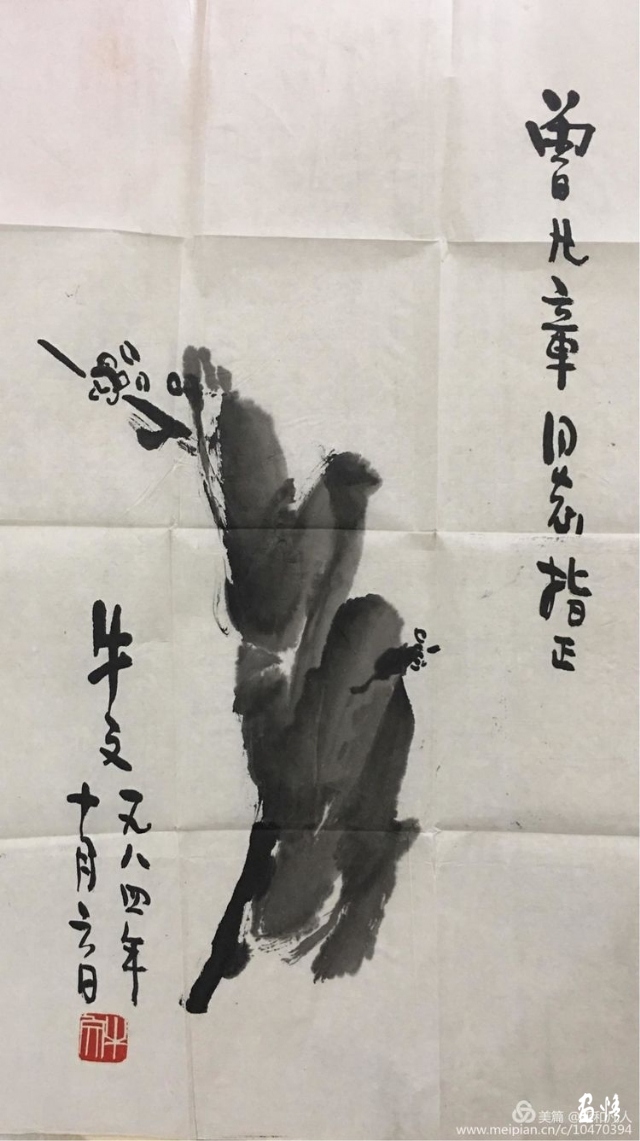 曾凡章同志指正
牛文
一九八四年
十月六日
牛文
美篇
www.meipian.cn/c/10470394